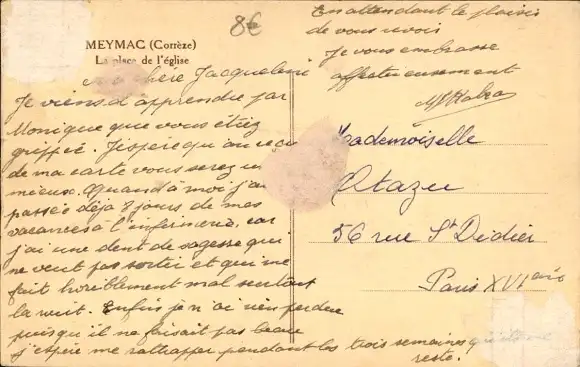 8€
MEYMAC (Corrèze)
La place de l'église
Ma chère Jacqueline
Je viens d'apprendre par
Monique que vous étiez
grippée. J'espère qu'au reçu
de ma carte vous serez
mieux. Quand à moi j'ai
passée déjà 8 jours de mes
vacances à l'infirmerie, car
j'ai une dent de sagesse qui
ne veut pas sortir et qui me
fait horriblement mal surtout
la nuit. Enfin je n'ai rien perdue
puisqu'il ne faisait pas beau
j'espère me rattrapper pendant les trois semaines qui
reste.
En attendant le plaisir
de vous revoir
Je vous embrasse
affectueusement
Mademoiselle
Atazu
56 rue St Didier
Paris XVI